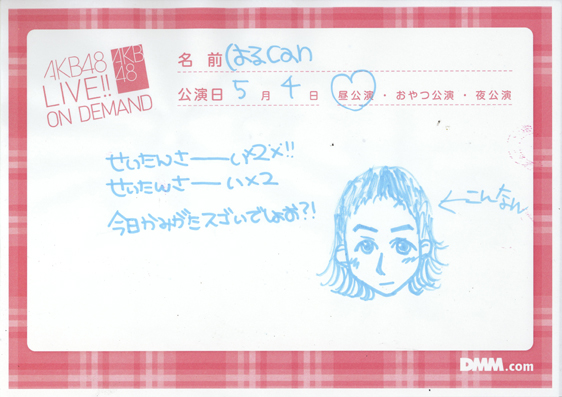 AKB48
LIVE!!
ON DEMAND
AKB
48
名前 はるcan
公演日 5月4日 昼公演・おやつ公演・夜公演
せいたんさーーい×2×!!
せいたんさーーい×2
今日かみがたスゴいでしょお?!
←こんなん
DMM.com